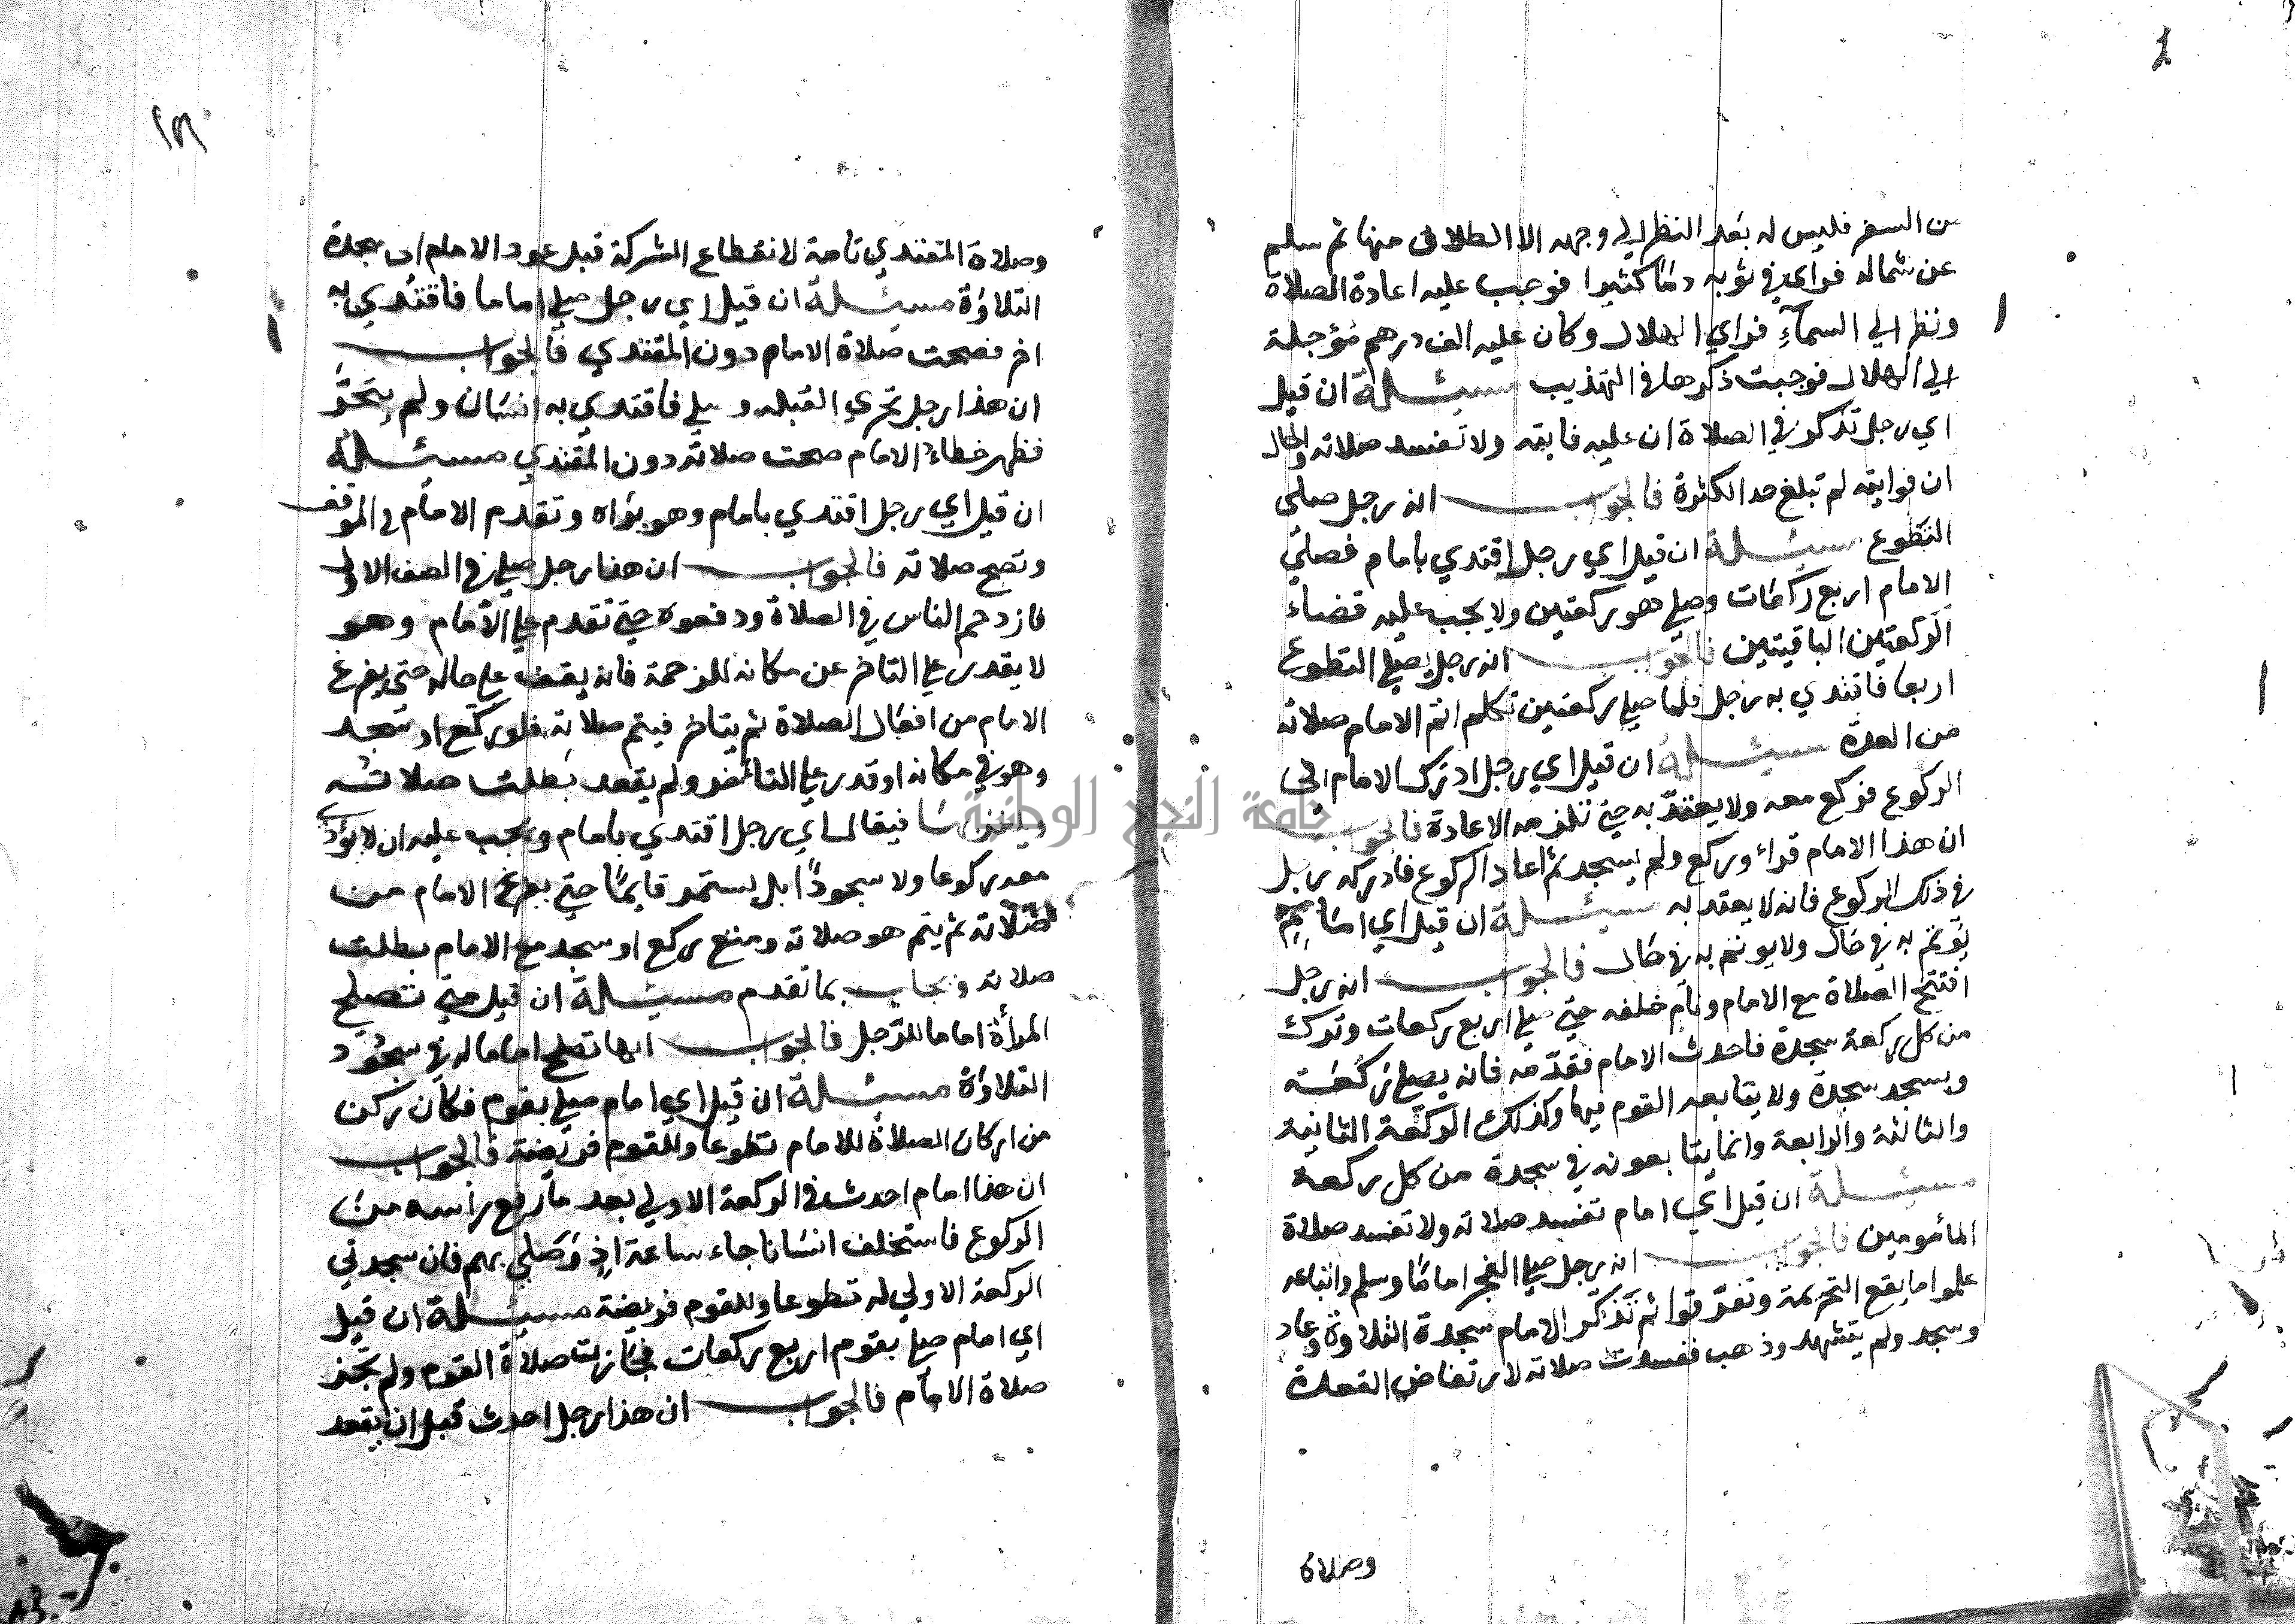 من السفر فليس له بعد النظر الي وجهه الا الطلاق منها ثم سلم
عن شماله فراي في ثوبه دما كثيرا فوجب عليه اعادة الصلاة
ونظر الي السمآءِ فراي الهلال وكان عليه الف درهم مؤجلة
الي الهلال فوجبت ذكرها في التهذيب مسئلة ان قيل
اي رجل تذكر في الصلاة ان عليه فايته ولا تفسد صلاته والحال
ان فوايته لم تبلغ حد الكثرة فالجواب انه رجل صلي
التطوع مسئلة ان قيل اي رجل اقتدي بامام فصلي
الامام اربع ركعات وصلي هو ركعتين ولا يجب عليه قضاء
الركعتين الباقيتين فالجواب انه رجل يصلي التطوع
اربعا فاقتدي به رجل فلما صلي ركعتين تكلم اتم الامام صلاته
من العدة مسئلة ان قيل اي رجل ادرك الامام الي
الركوع فركع معه ولا يعتد به حتي تلزمه الاعادة فالجواب
ان هذا الامام قراء وركع ولم يسجد ثم اعاد الركوع فادركه رجل
في ذلك الركوع فانه لا يعتد به مسئلة ان قيل اي امام
يؤتم به في حال ولا يؤتم به في حال فالجواب انه رجل
افتتح الصلاة مع الامام ونام خلفه حتي صلي اربع ركعات وترك
من كل ركعة سجدة فاحدث الامام فقدمه فانه يصلي ركعة
ويسجد سجدة ولا يتابعه القوم فيها وكذلك الركعة الثانية
والثالثة والرابعة وانما يتابعونه في سجدة من كل ركعة
مسئلة ان قيل اي امام تفسد صلاته ولا تفسد صلاة
المأمومين فالجواب انه رجل صلي الفجر اماما وسلم واتباعه
علموا ما يقع التحريمة وتفرقوا ثم تذكر الامام سجدة التلاوة وعاد
وسجد ولم يتشهد وذهب ففسدت صلاته لارتفاض القعدة
وصلاة
وصلاة المقتدي تامة لانقطاع الشركة قبل عود الامام الي سجدة
التلاوة مسئلة ان قيل اي رجل صلي اماما فاقتدي به
اخر فصحت صلاة الامام دون المقتدي فالجواب
ان هذا رجل تحري القبله وصلي فاقتدي به انسان ولم يتحر
فظهر خطاء الامام صحت صلاته دون المقتدي مسئلة
ان قيل اي رجل اقتدي بامام وهو يراه وتقدم الامام في الموقف
وتصح صلاته فالجواب ان هذا رجل صلي في الصف الاول
فازدحم الناس في الصلاة ودفعوه حتي تقدم علي الامام وهو
لا يقدر علي التاخر عن مكانه للزحمة فانه يقف علي حاله حتي يفرغ
الامام من افعال الصلاة ثم يتاخر فيتم صلاته فلو ركع او سجد
وهو في مكانه او قدر علي التاخر ولم يقعد بطلت صلاته
ويلغز ايضا فيقال اي رجل اقتدي بامام ويجب عليه ان لا يؤدي
معه ركوعا ولا سجودا بل يستمر قايما حتي يفرغ الامام من
صلاته ثم يتم هو صلاته ومتي ركع او سجد مع الامام بطلت
صلاته ويجاب بما تقدم مسئلة ان قيل متي تصلح
المرأة اماما للرجل فالجواب انها تصلح اماما له في سجود
التلاوة مسئلة ان قيل اي امام صلي بقوم فكان ركن
من اركان الصلاة للامام تطوعا وللقوم فريضة فالجواب
ان هذا امام احدث في الركعة الاولي بعد ما رفع رأسه من
الركوع فاستخلف انسانا جاء ساعة اذٍ وصلي بهم فان سجدتي
الركعة الاولي له تطوعا وللقوم فريضة مسئلة ان قيل
اي امام صلي بقوم اربع ركعات فجازت صلاة القوم ولم تجز
صلاة الامام فالجواب ان هذا رجل احدث قبل ان يقعد
جامعة النجاح الوطنية